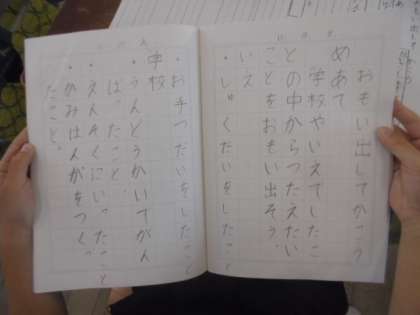 おもい出してかこう
めあて
学校やいえでしたこ
との中からつたえたい
ことをおもい出そう。
いえ
・しゅくだいをしたこと
・お手つだいをしたこと
学校
・うんどうかいでがん
ばったこと。
・えんそくにいったこと
・かみはんがをつくっ
たこと。